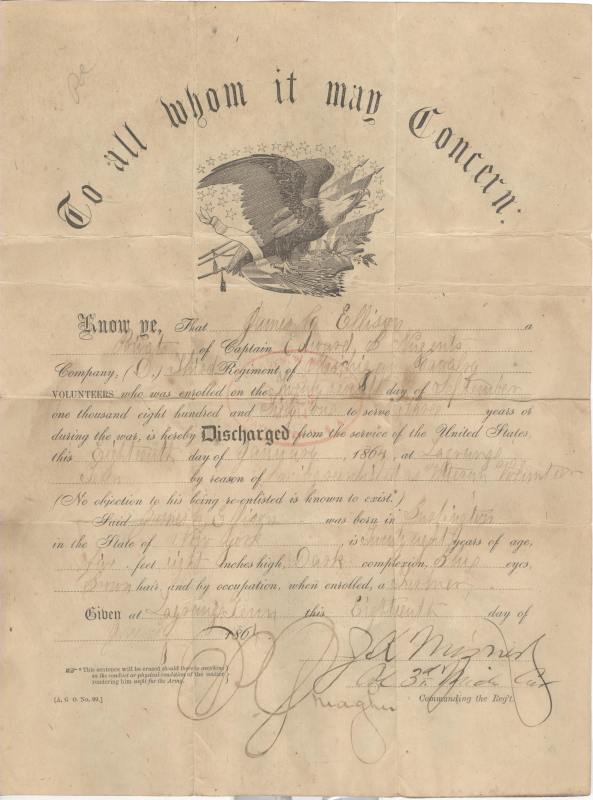 To all whom it may Concern:
Know ye, That James Ellison a
Private of Captain Edward B Nugents
Company, (D,) Third Regiment of Michigan Cavalry
VOLUNTEERS who was enrolled on the day of September
one thousand eight hundred and to serve years or
during the war, is hereby Discharged from the service of the United States,
this Eighteenth day of January, 1864, at Lagrange
Tenn by reason of as Veteran Volunteer
(No objection to his being re-enlisted is known to exist.*)
Said James Ellison was born in
in the State of New York, is years of age,
Five feet eight inches high, Dark complexion, Blue eyes,
Brown hair, and by occupation, when enrolled, a Farmer
Given at Lagrange Tenn this Eighteenth day of
January 1864
J K Mizner
Col 3rd Mich Cav
Commanding the Reg't.
☞ * This sentence will be erased should there be anything
in the conduct or physical condition of the soldier
rendering him unfit for the Army.
[A. G. O. No. 99.]